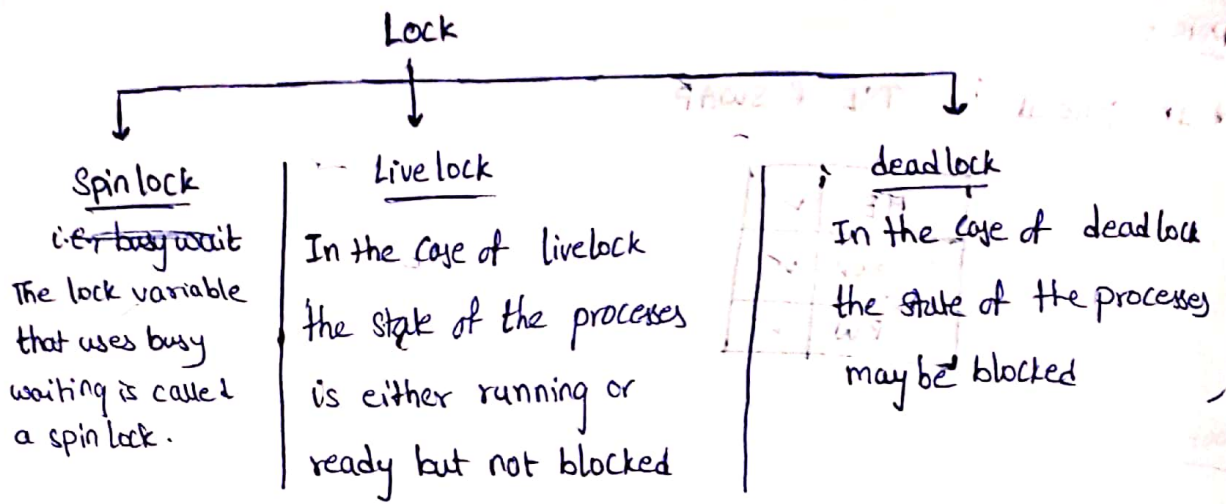 Lock
Spin lock
i.e., busy wait
The lock variable
that uses busy
waiting is called
a spin lock.
Live lock
In the case of livelock
the state of the processes
is either running or
ready but not blocked
deadlock
In the case of deadlock
the state of the processes
may be blocked